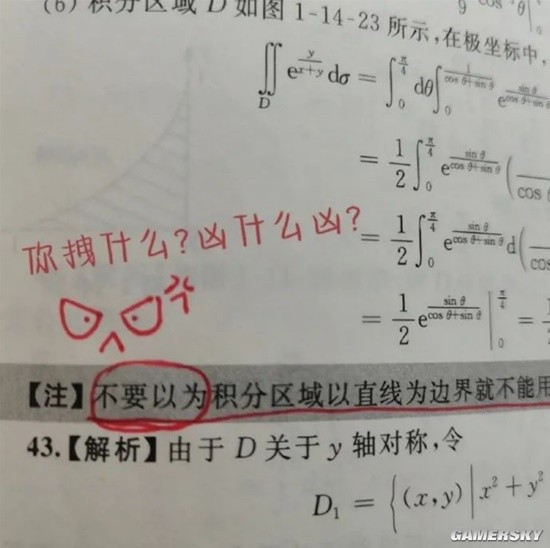 (6) 积分区域 D 如图 1-14-23 所示,在极坐标中,
∬_D e^{y/(x+y)} dσ = ∫_0^{π/4} dθ ∫_0^{1/(cos θ+sin θ)} e^{sin θ/(cos θ+sin θ)}
= 1/2 ∫_0^{π/4} e^{sin θ/(cos θ+sin θ)} (
你拽什么?凶什么凶?
= 1/2 ∫_0^{π/4} e^{sin θ/(cos θ+sin θ)} d(
= 1/2 e^{sin θ/(cos θ+sin θ)} |_0^{π/4} =
【注】不要以为积分区域以直线为边界就不能用
43.【解析】由于 D 关于 y 轴对称,令
D₁ = {(x,y) | x² + y²
GAMERSKY